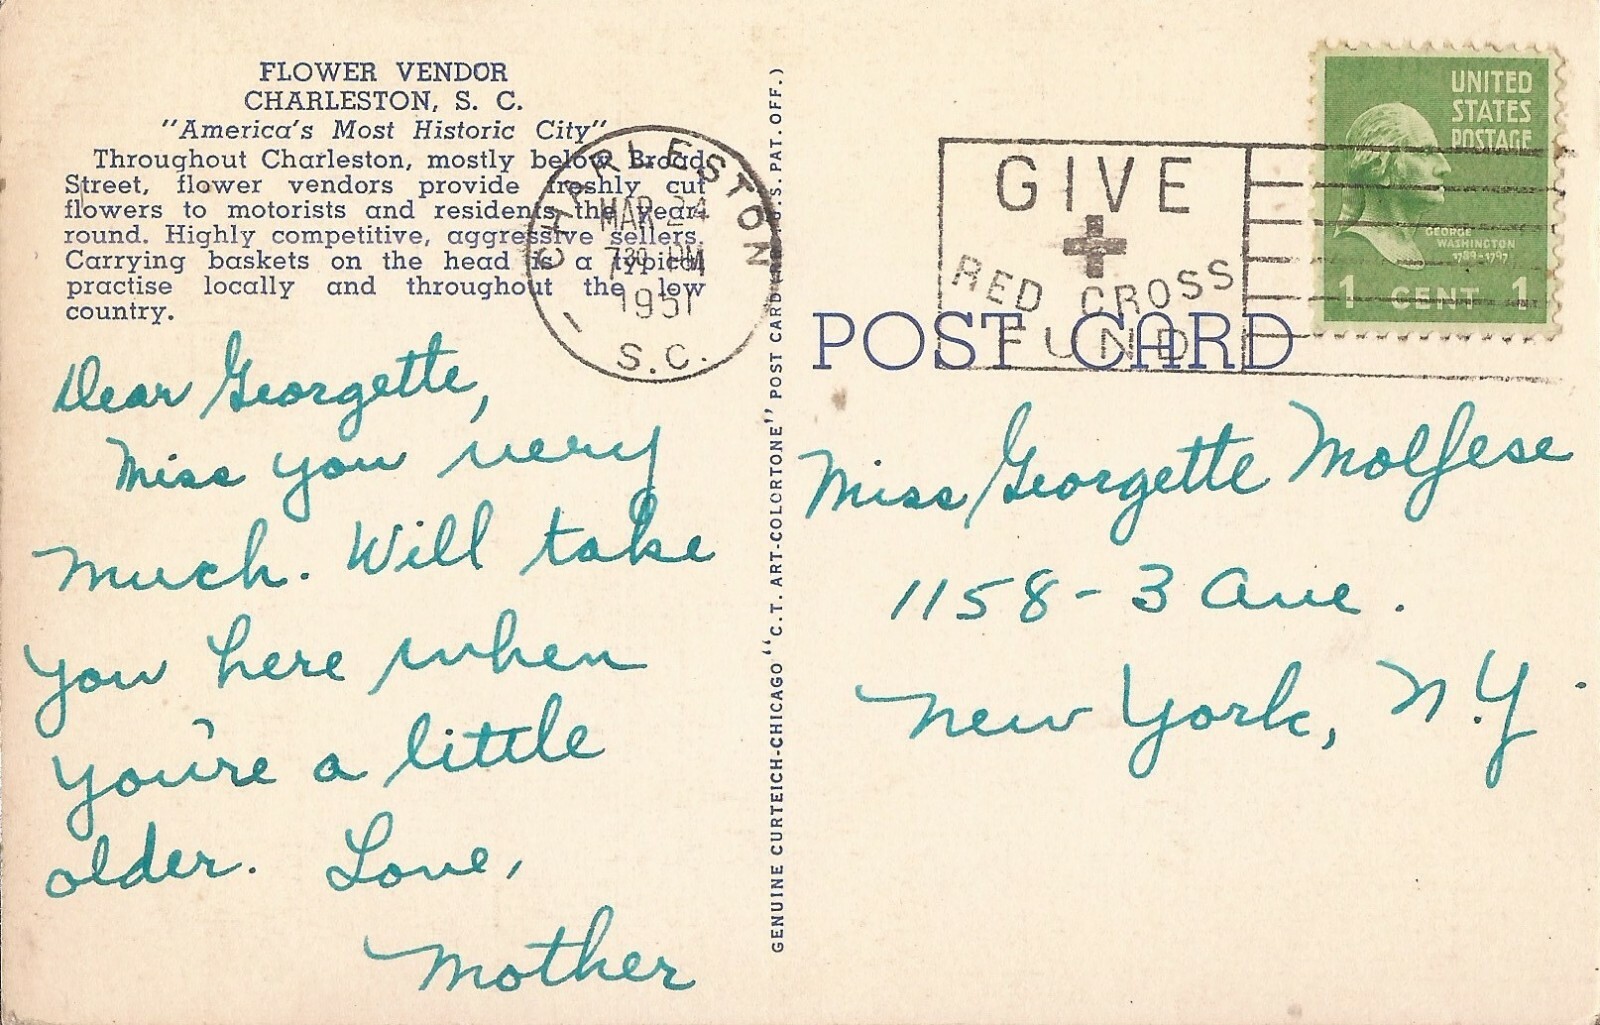 FLOWER VENDOR
CHARLESTON, S. C.
"America's Most Historic City"
Throughout Charleston, mostly below Broad
Street, flower vendors provide freshly cut
flowers to motorists and residents the year
round. Highly competitive, aggressive sellers.
Carrying baskets on the head is a typical
practise locally and throughout the low
country.
CHARLESTON
MAR 24
7 30 PM
1951
S.C.
Dear Georgette,
Miss you very
much. Will take
you here when
you're a little
older. Love,
Mother
GENUINE CURTEICH-CHICAGO "C.T. ART-COLORTONE" POST CARD (REG. U.S. PAT. OFF.)
GIVE
RED CROSS
FUND
UNITED
STATES
POSTAGE
GEORGE
WASHINGTON
1789-1797
1 CENT 1
POST CARD
Miss Georgette Molfese
1158-3 Ave.
New York, N.Y.